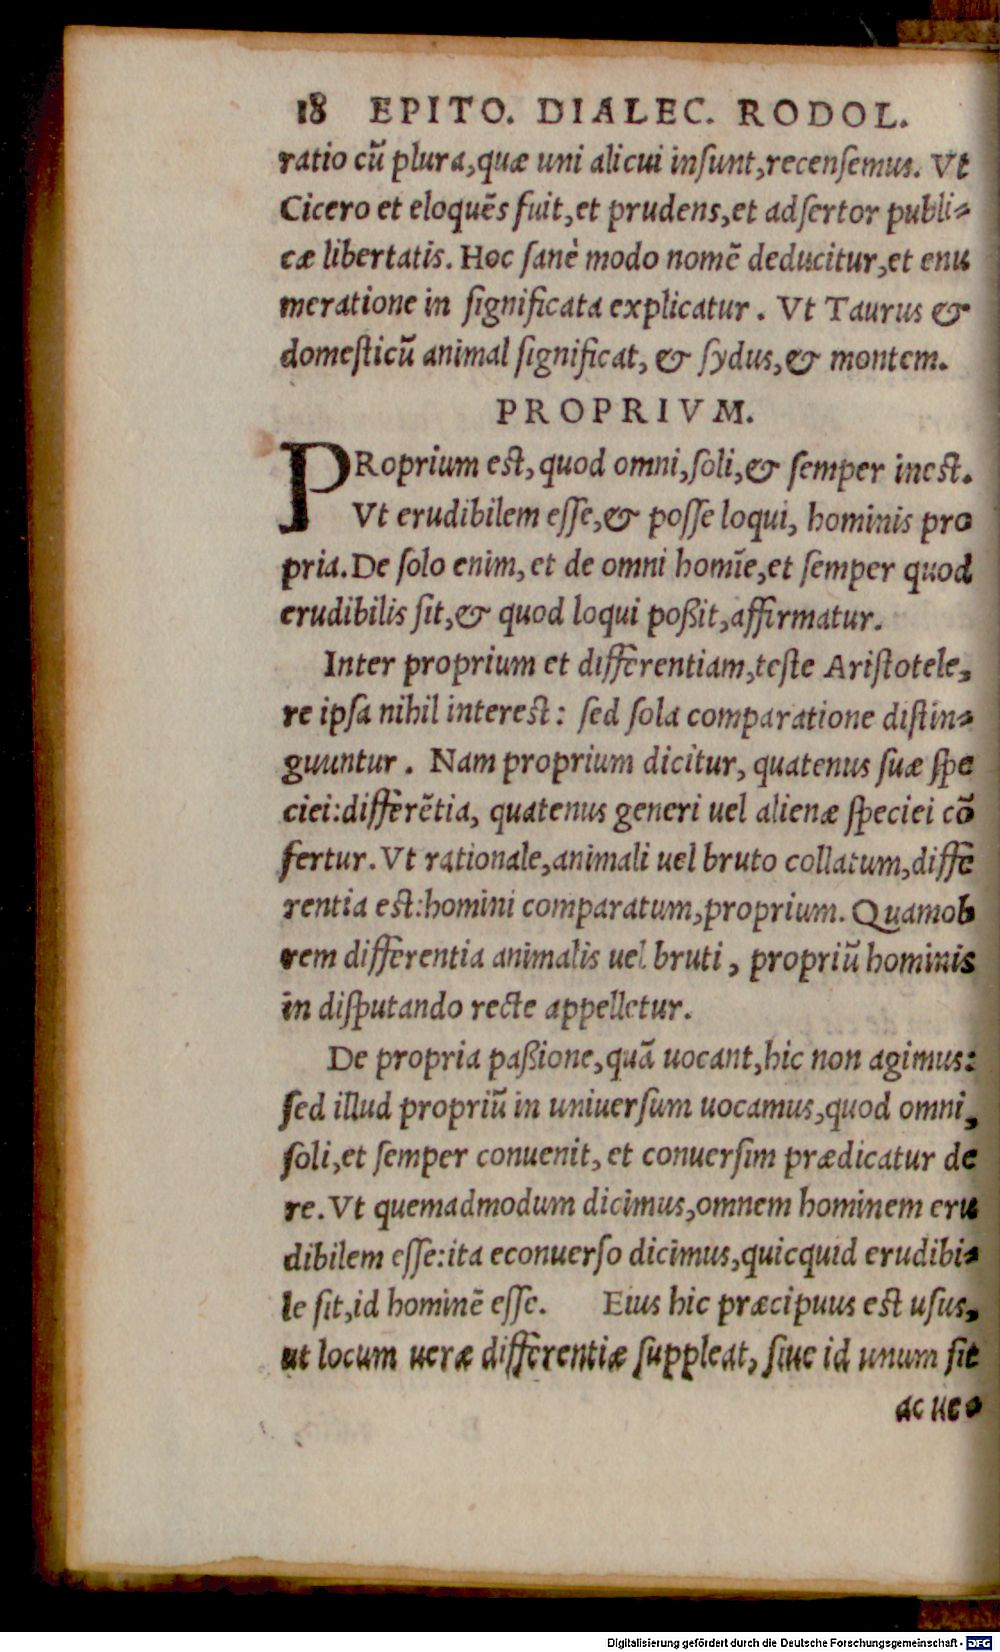 18 EPITO. DIALEC. RODOL.
ratio cũ plura,quæ uni alicui inſunt,recenſemus. Vt
Cicero et eloquẽs fuit,et prudens,et adſertor publi-
cæ libertatis. Hoc ſanè modo nomẽ deducitur,et enu
meratione in ſignificata explicatur. Vt Taurus &
domeſticũ animal ſignificat, & ſydus,& montem.
PROPRIVM.
PRoprium eſt,quod omni,ſoli,& ſemper ineſt.
Vt erudibilem eſſe,& poſſe loqui, hominis pro
pria.De ſolo enim,et de omni homĩe,et ſemper quod
erudibilis ſit,& quod loqui poßit,affirmatur.
Inter proprium et differentiam,teſte Ariſtotele,
re ipſa nihil intereſt: ſed ſola comparatione diſtin-
guuntur. Nam proprium dicitur, quatenus ſuæ ſpe
ciei:differẽtia, quatenus generi uel alienæ ſpeciei cõ
fertur.Vt rationale,animali uel bruto collatum,diffe
rentia eſt:homini comparatum,proprium. Quamob
rem differentia animalis uel bruti, propriũ hominis
in diſputando recte appelletur.
De propria paßione,quã uocant,hic non agimus:
ſed illud propriũ in uniuerſum uocamus,quod omni,
ſoli,et ſemper conuenit, et conuerſim prædicatur de
re.Vt quemadmodum dicimus,omnem hominem eru
dibilem eſſe:ita econuerſo dicimus,quicquid erudibi-
le ſit,id hominẽ eſſe. Eius hic præcipuus eſt uſus,
ut locum ueræ differentiæ ſuppleat, ſiue id unum ſit
ac ue-
Digitalisierung gefördert durch die Deutsche Forschungsgemeinschaft - DFG